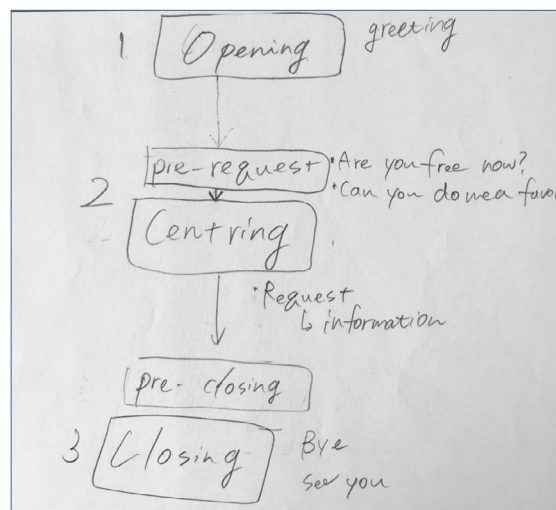 1 Opening greeting
pre-request · Are you free now?
2 · Can you do me a favor
Centring
· Request
↳ information
pre-closing
3 Closing Bye
see you